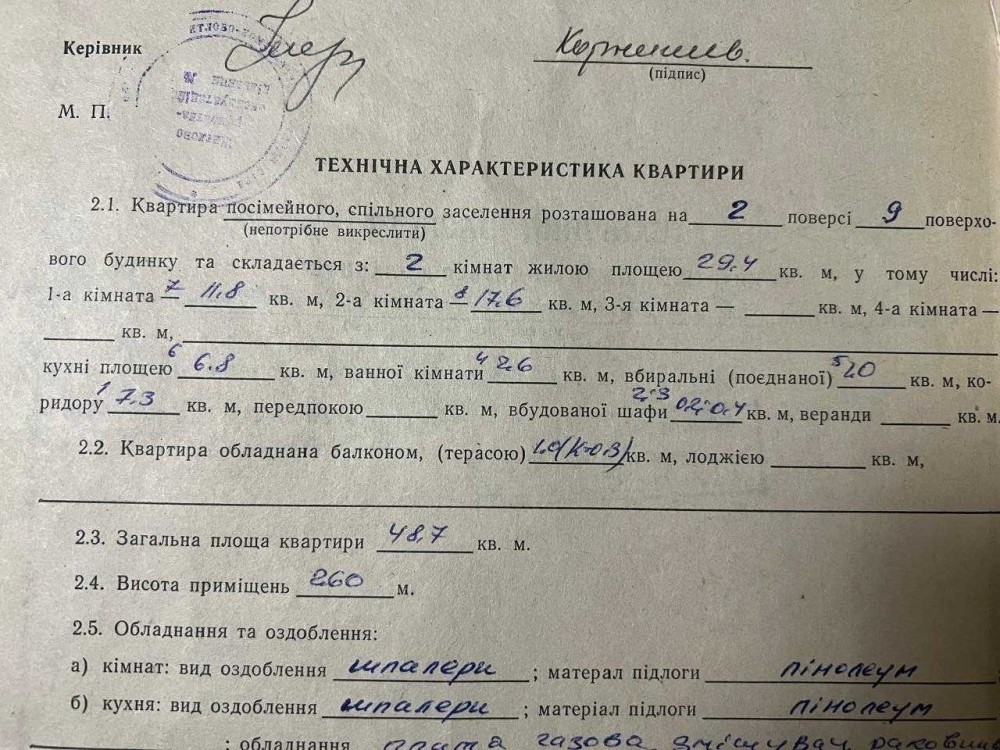 Керівник
(підпис)
М. П.
ТЕХНІЧНА ХАРАКТЕРИСТИКА КВАРТИРИ
2.1. Квартира посімейного, спільного заселення розташована на 2 поверсі 9 поверхо-
(непотрібне викреслити)
вого будинку та складається з: 2 кімнат жилою площею 29.4 кв. м, у тому числі:
1-а кімната — 7 11.8 кв. м, 2-а кімната — 8 17.6 кв. м, 3-я кімната — кв. м, 4-а кімната —
кв. м,
кухні площею 6 6.8 кв. м, ванної кімнати 4 2.6 кв. м, вбиральні (поєднаної) 5 1.0 кв. м, ко-
ридору 1 7.3 кв. м, передпокою кв. м, вбудованої шафи 2;3 0.2; 0.4 кв. м, веранди кв. м.
2.2. Квартира обладнана балконом, (терасою) кв. м, лоджією кв. м,
2.3. Загальна площа квартири 48.7 кв. м.
2.4. Висота приміщень 260 м.
2.5. Обладнання та оздоблення:
а) кімнат: вид оздоблення шпалери ; матерал підлоги лінолеум
б) кухня: вид оздоблення шпалери ; матеріал підлоги лінолеум
; обладнання плита газова, змішувач раковина